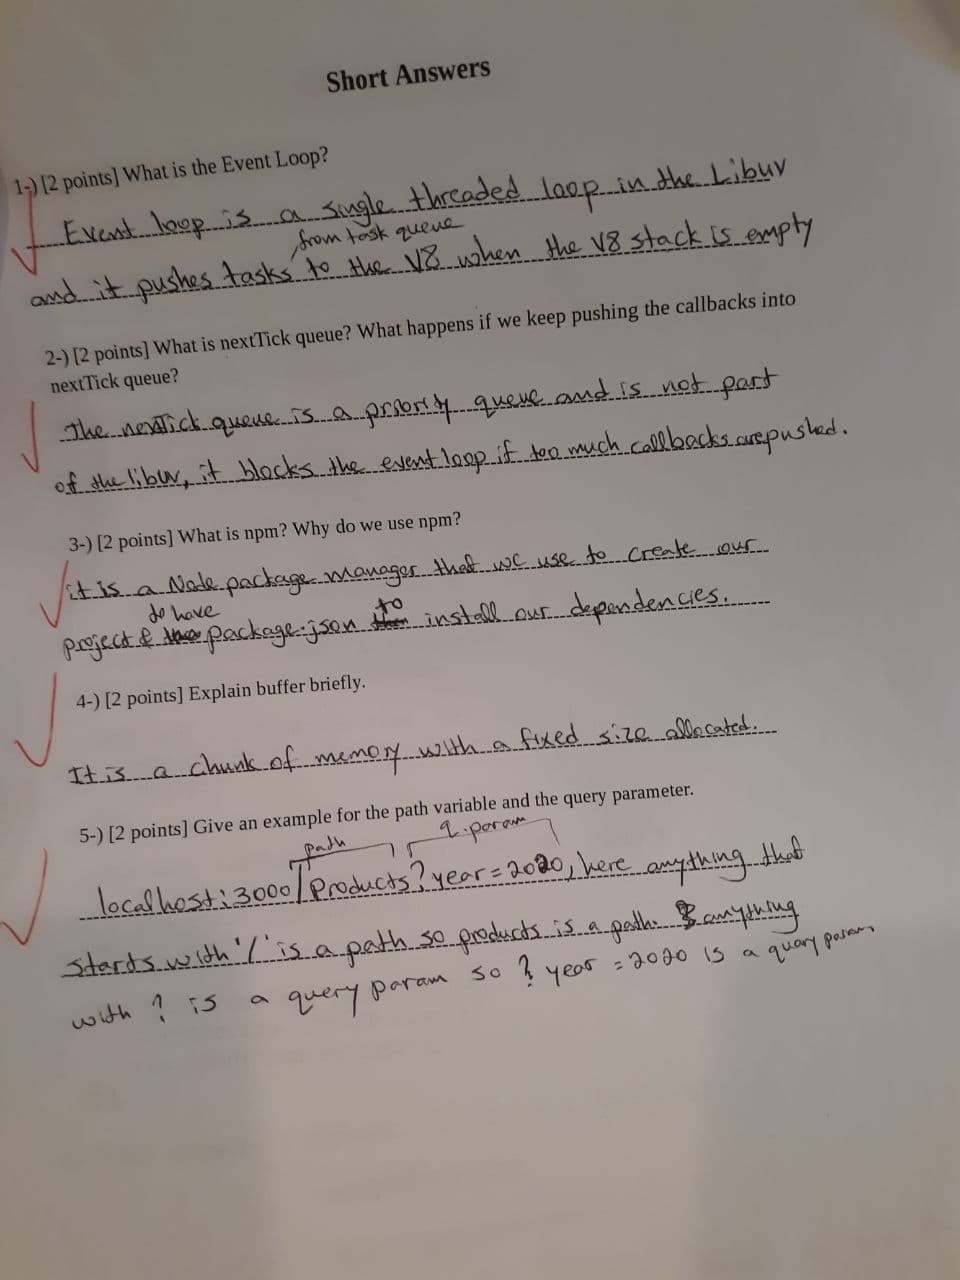 Short Answers
1-) [2 points] What is the Event Loop?
Event loop is a single threaded loop in the Libuv
from task queue
and it pushes tasks to the V8 when the V8 stack is empty
2-) [2 points] What is nextTick queue? What happens if we keep pushing the callbacks into
nextTick queue?
The nextTick queue is a priority queue and is not part
of the libuv, it blocks the event loop if too much callbacks are pushed.
3-) [2 points] What is npm? Why do we use npm?
it is a Node package manager that we use to create our
to have to
project & package.json install our dependencies.
4-) [2 points] Explain buffer briefly.
It is a chunk of memory with a fixed size allocated.
5-) [2 points] Give an example for the path variable and the query parameter.
path q.param
localhost:3000/products?year=2020, here anything that
starts with '/' is a path so products is a path. & anything
with ? is a query param so ? year = 2020 is a quary param